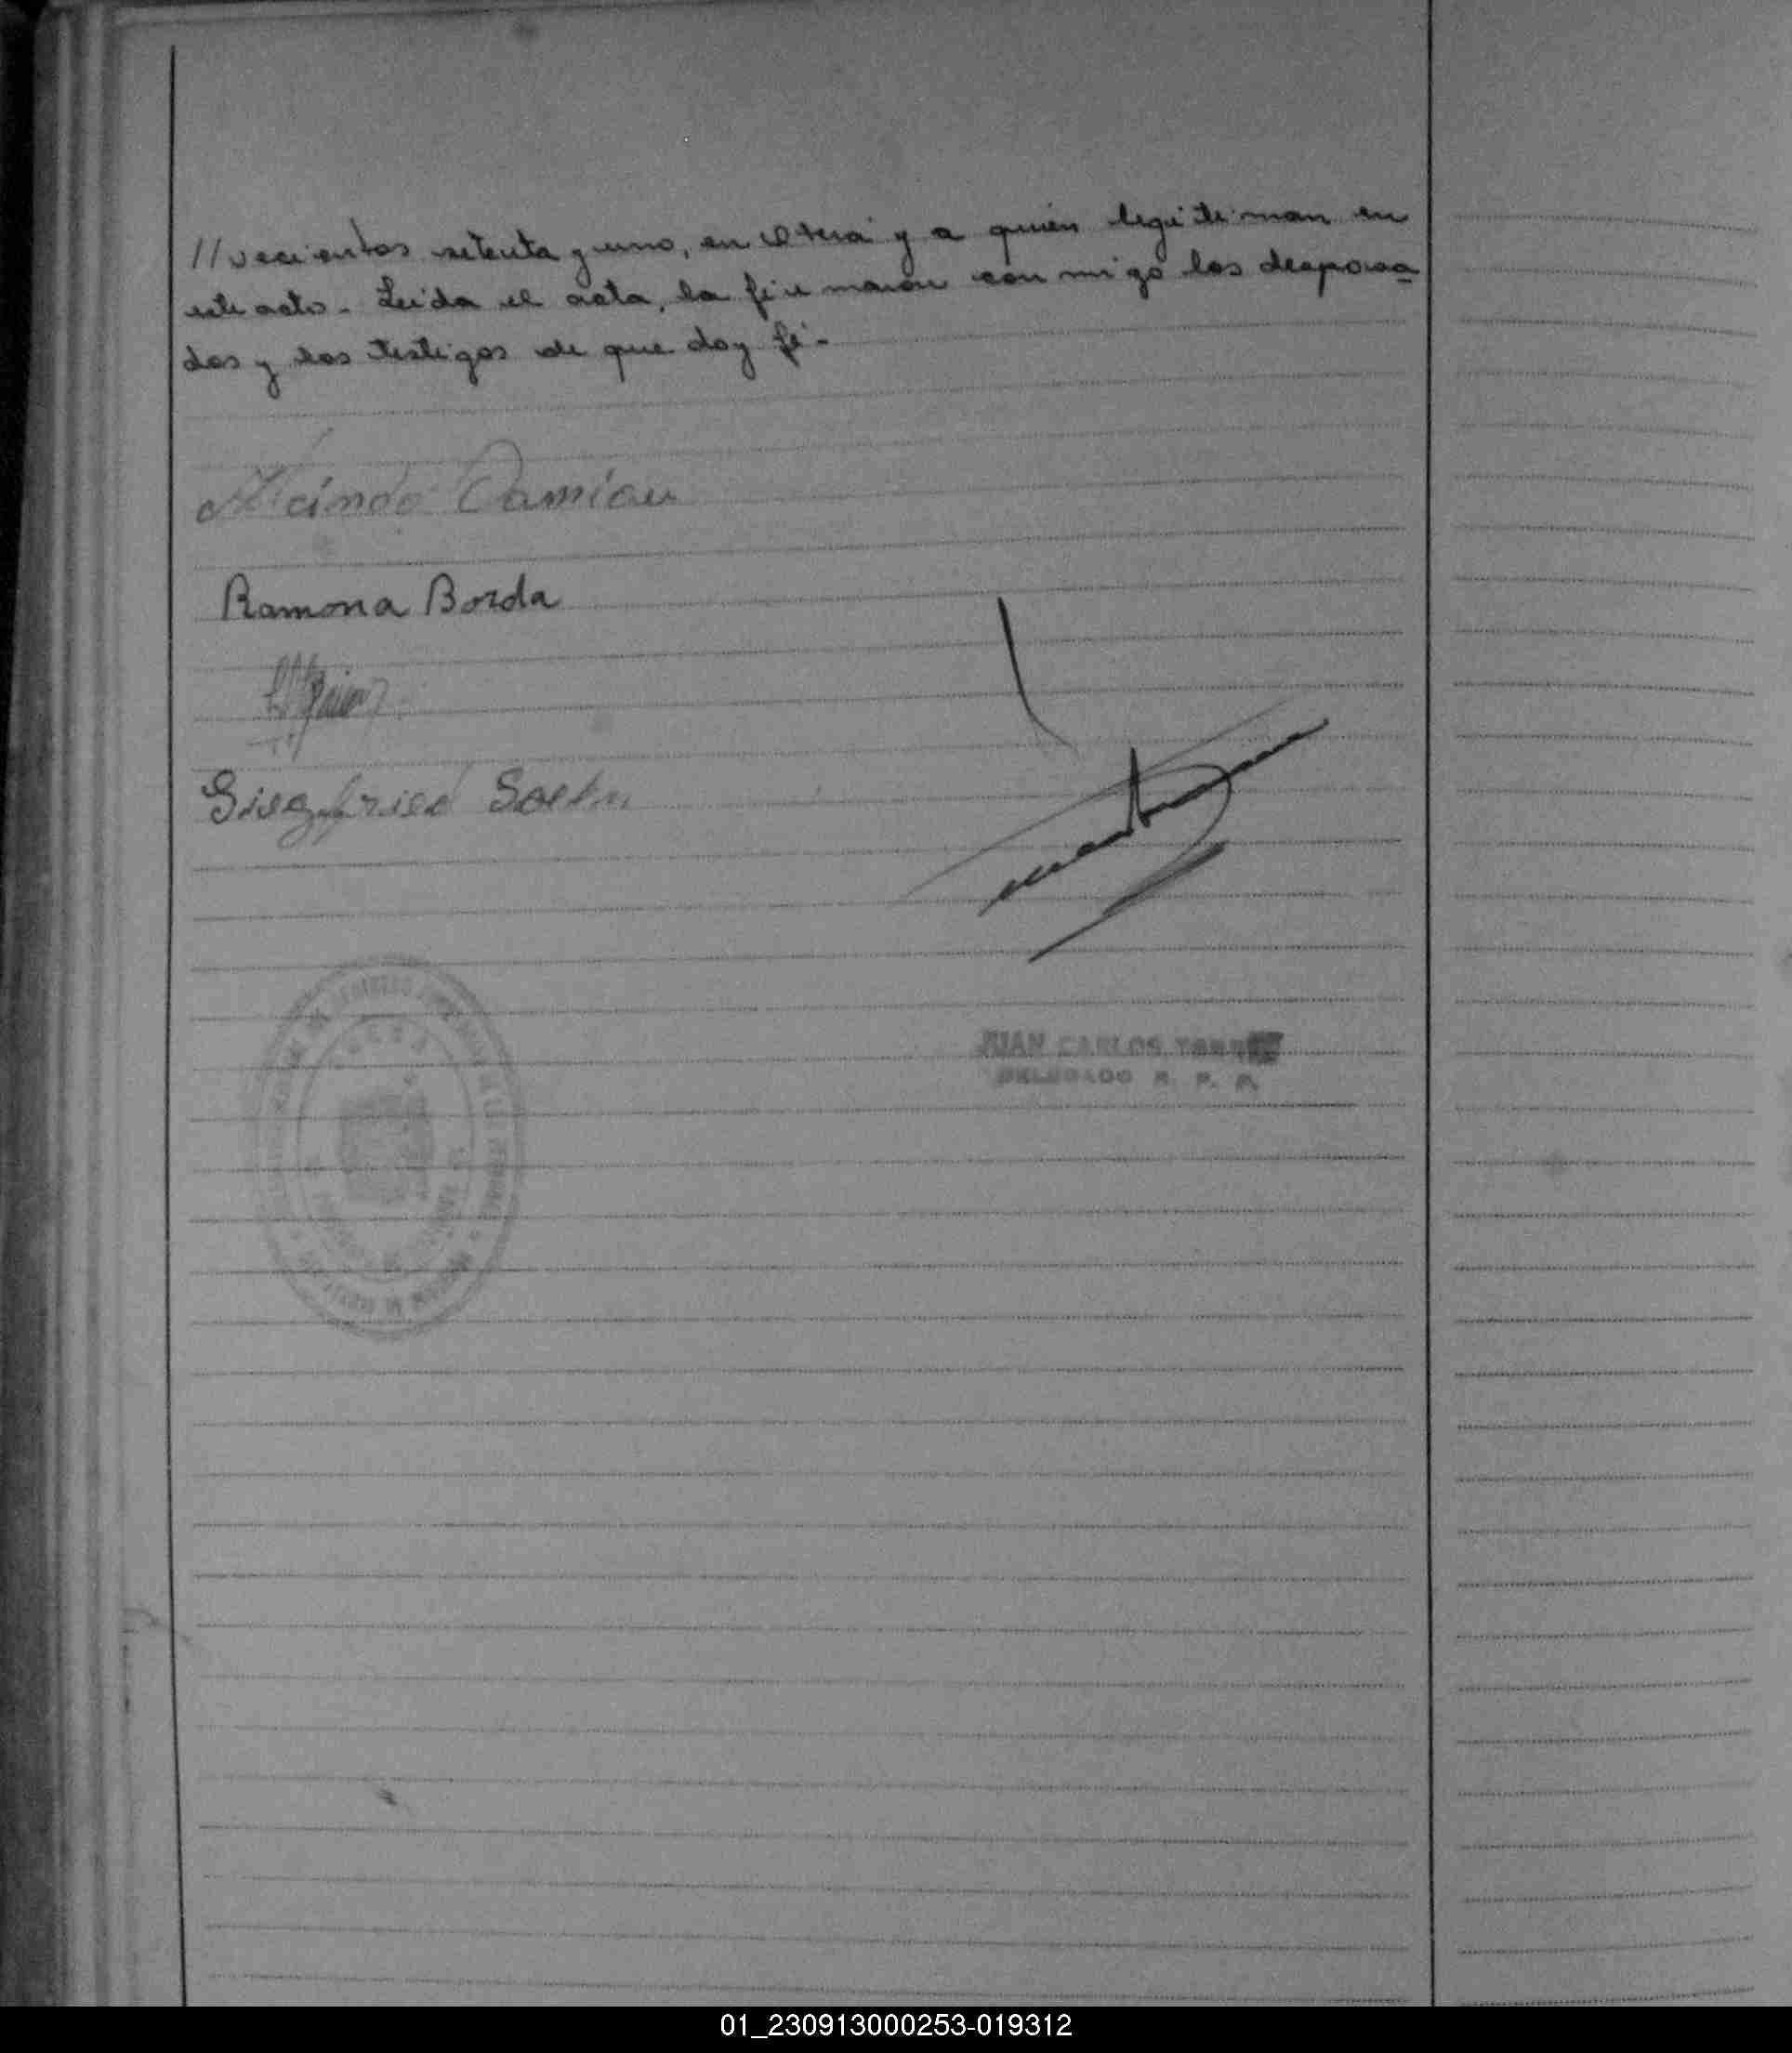 //vecientos setenta y uno, en Oberá y a quién legitiman en
este acto. Leida el acta, la firmaron con migo los desposa
dos y los testigos de que doy fé.-
Alcindo Damian
Ramona Borda
Siegfried
JUAN CARLOS TORRES
DELEGADO R. P. P.
01_230913000253-019312